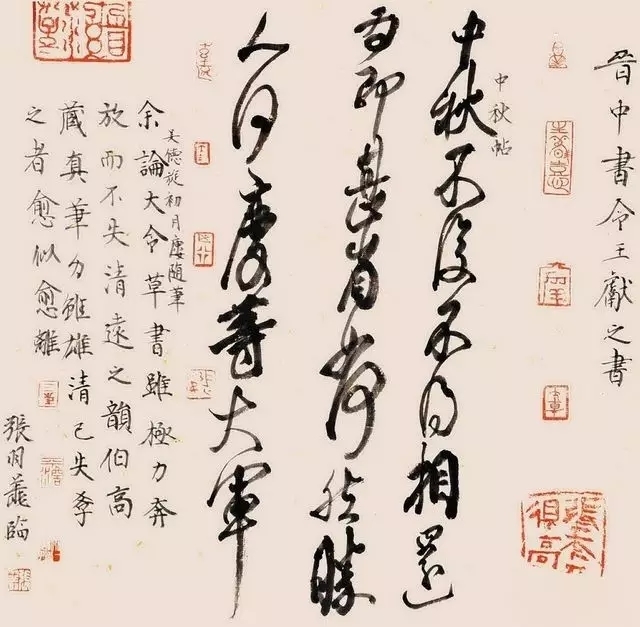 晉中書令王獻之書
中秋帖
中秋不復不得相還
為即甚省如何然勝
人何慶等大軍
吳德旋初月廔隨筆
余論大令草書雖極力奔
放而不失清遠之韻伯高
藏真筆力雖雄清已失斈
之者愈似愈離
張明臨